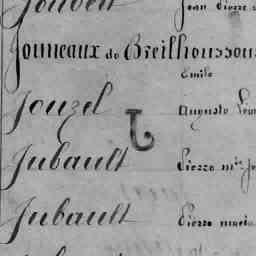 Joubert Jean Pierre
Jouneaux de Breilhoussoux
Emile
Jouzel Auguste
Jubault Pierre mie
Jubault Pierre marie